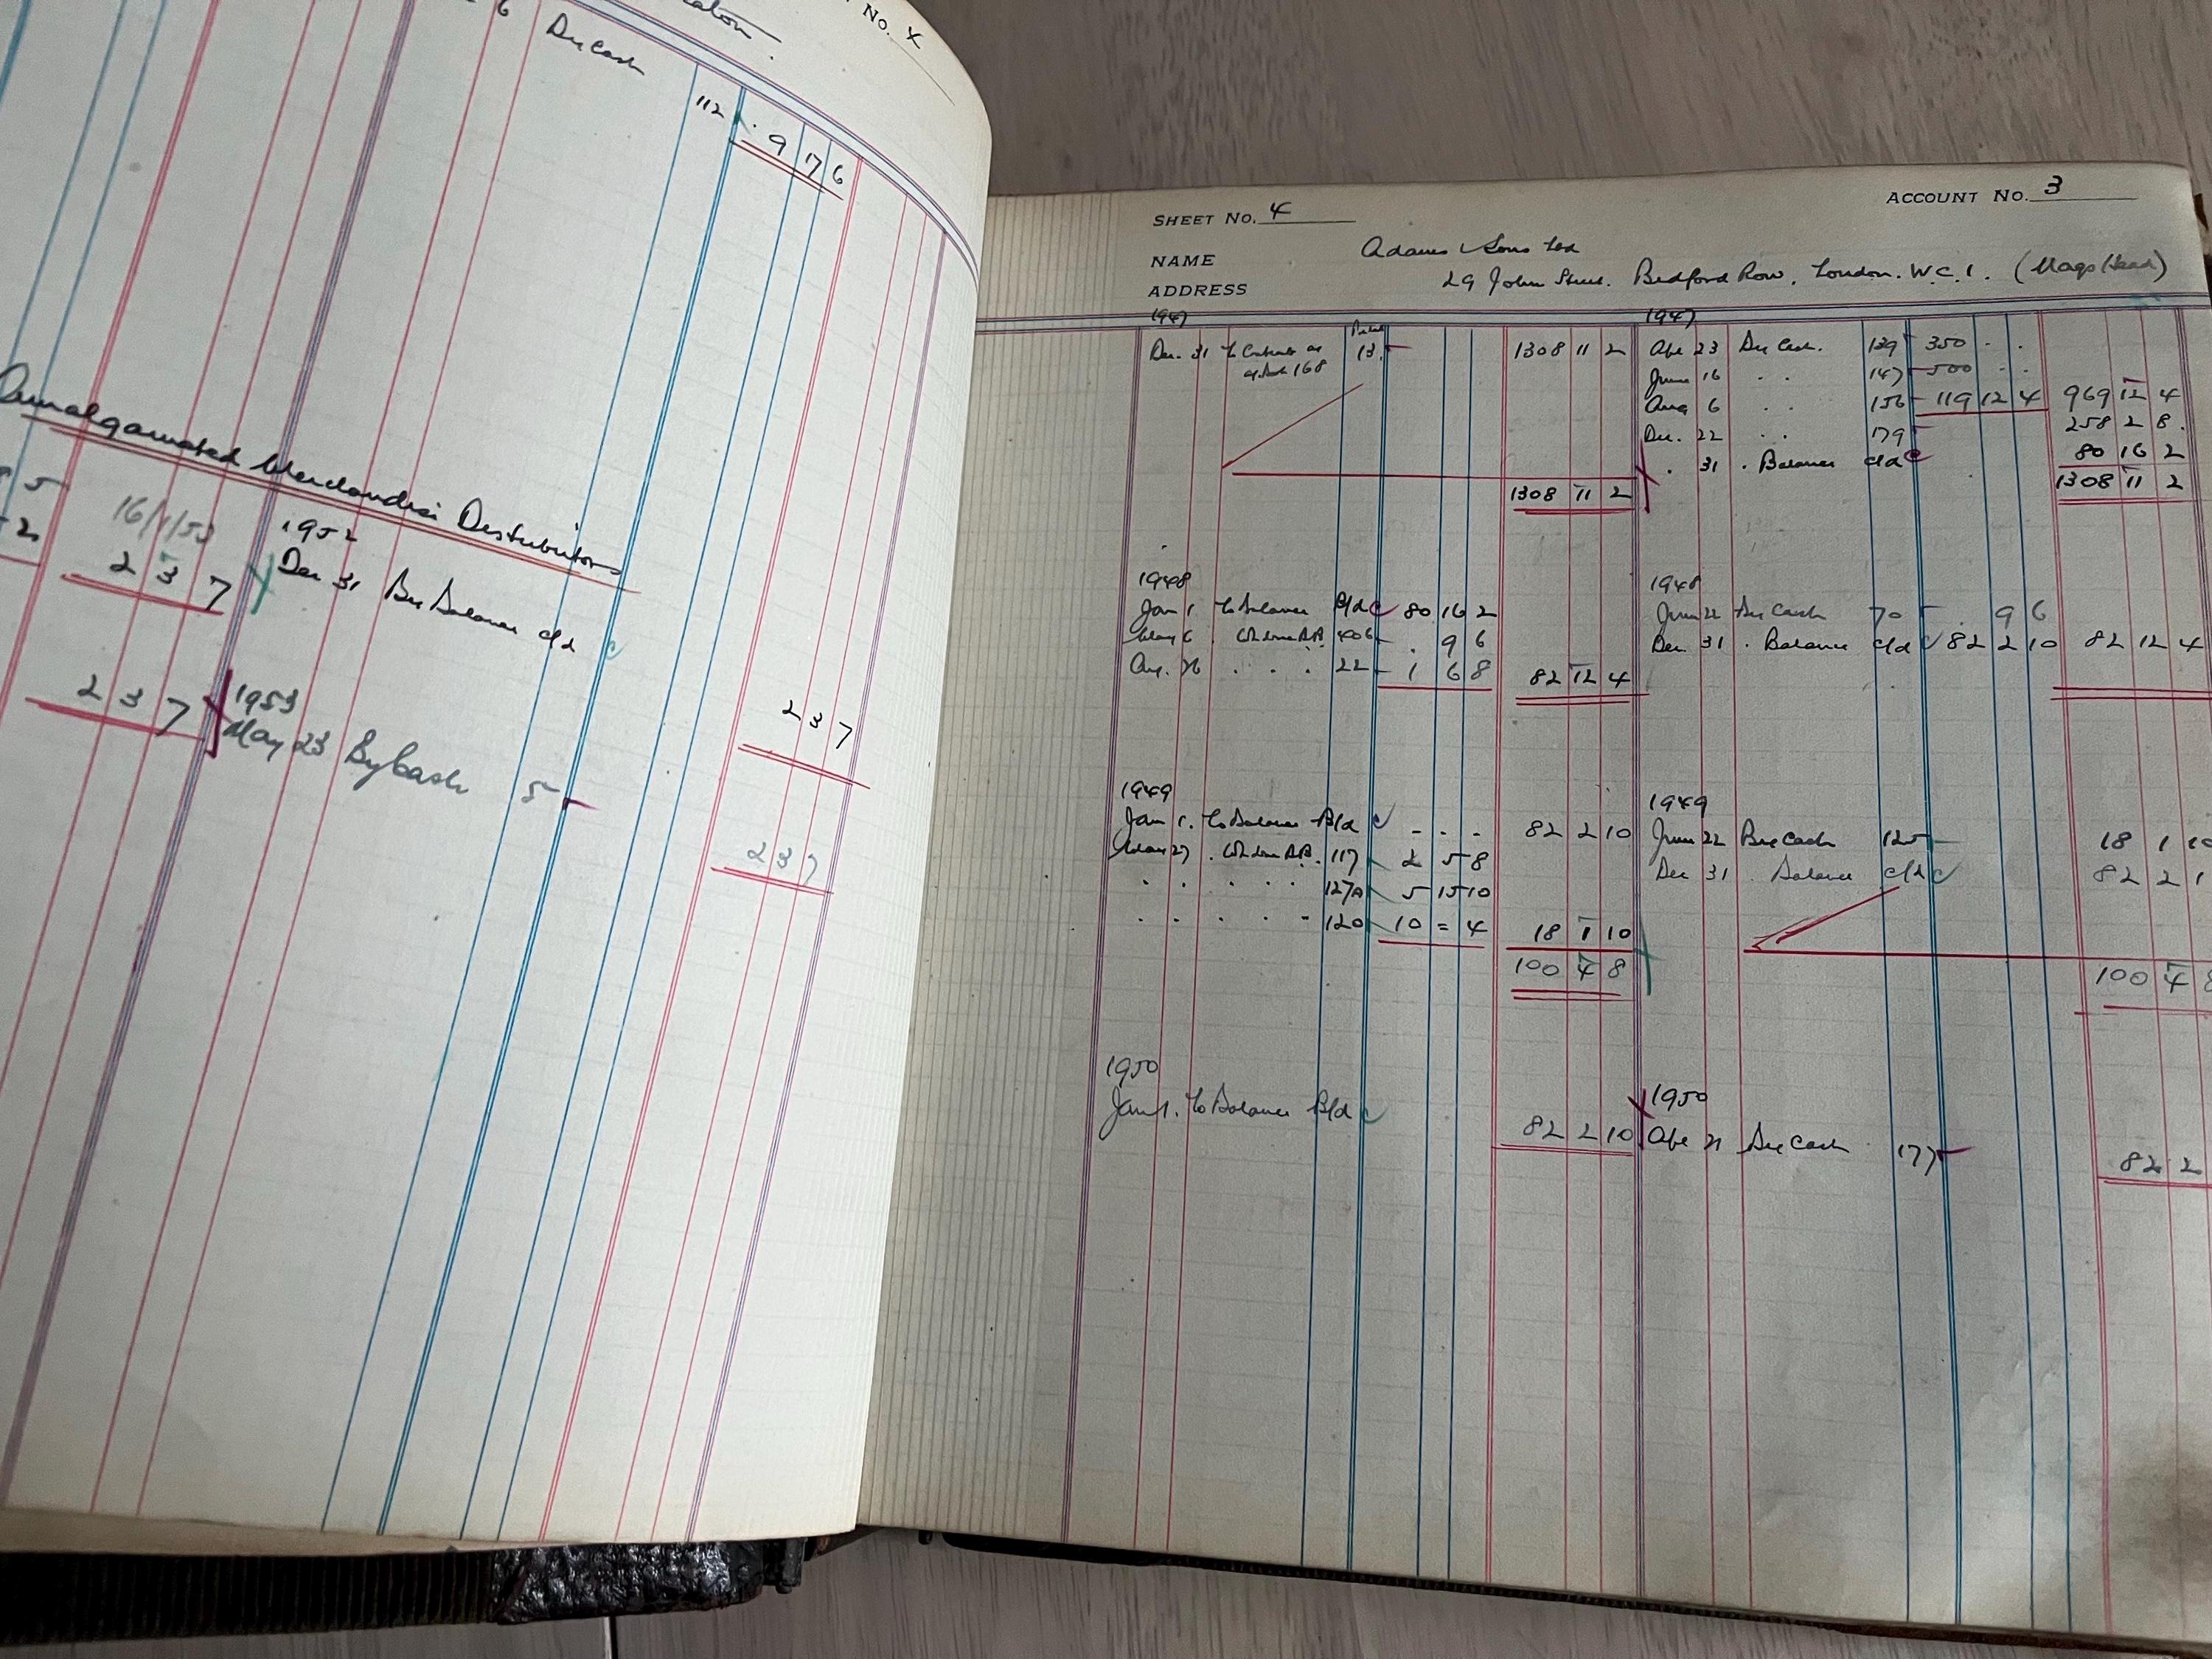 No. 4
By Cash
112 . 9 7 6
Amalgamated Merchandise Distributors
16/1/53
1952
2 3 7 Dec 31 By Balance c/d
2 3 7
1953
2 3 7 May 23 By Cash 5
2 3 7
SHEET No. 4 ACCOUNT No. 3
NAME Adams & Sons Ltd
ADDRESS 29 John Street. Bedford Row, London. W.C.1.
1947 1947
Dec. 31 To Contracts as 13 1308 11 2 Apl 23 By Cash. 139 350 . .
168 June 16 . . 147 500 . .
Aug 6 . . 156 119 12 4 969 12 4
Dec. 22 . . 179 258 2 8
. 31 . Balance c/d 80 16 2
1308 11 2 1308 11 2
1948 1948
Jan 1. To Balance B/d 80 16 2 June 22 By Cash 70 . 9 6
May 6 . 406 . 9 6 Dec 31 . Balance c/d 82 2 10 82 12 4
Aug. 26 . . . 22 1 6 8 82 12 4
1949 1949
Jan 1. To Balance B/d - - - 82 2 10 June 22 By Cash 125 18 1 10
May 27 . 117 2 5 8 Dec 31 . Balance c/d 82 2 1
. . . . . 127A 5 15 10
. . . . . 120 10 = 4 18 1 10
100 4 8 100 4 8
1950 1950
Jan 1. To Balance B/d 82 2 10 Apl 21 By Cash 177 82 2